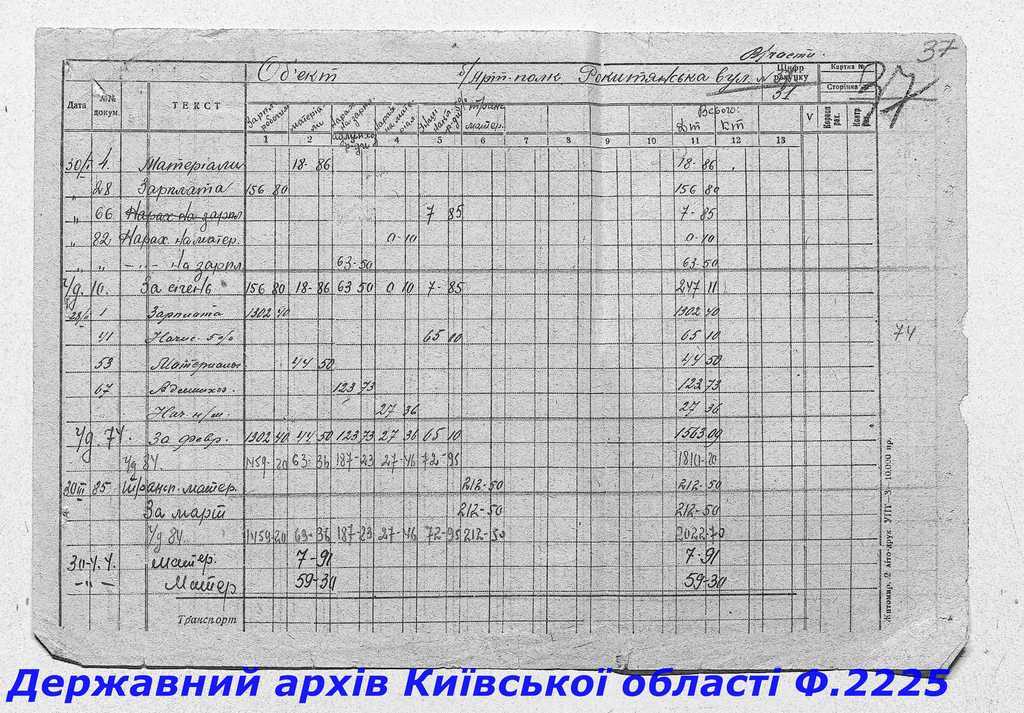 37
Об'єкт Рокитянська вул. №
Цифр рахунку
31
Картка №
Сторінка
37
Дата №№ докум. ТЕКСТ
Зарпл. робочим матеріали
транс. матер.
Всього:
Дт Кт
V
1 2 3 4 5 6 7 8 9 10 11 12 13
4. Матеріали 18-86 18-86
" 28 Зарплата 156 80 156 80
" 66 Нарах на зарпл 7 85 7-85
" 82 Нарах. на матер. 0-10 0-10
" " -"- на зарпл 63-50 63-50
10. За січень 156 80 18-86 63 50 0 10 7-85 247 11
1 Зарплата 1302 40 1302 40
41 Начис. 5% 65 10 65 10
74
53 Материалы 44 50 44 50
67 123 73 123 73
Нач. н/м. 27 36 27 36
74. За февр. 1302 40 44 50 123 73 27 36 65 10 1563 09
84. 1459-20 63-36 187-23 27-46 72-95 1810-20
85 Трансп. матер. 212-50 212-50
За март 212-50 212-50
84. 1459-20 63-36 187-23 27-46 72-95 212-50 2022-70
матер. 7-91 7-91
-"- Матер 59-30 59-30
Транспорт
Державний архів Київської області Ф.2225